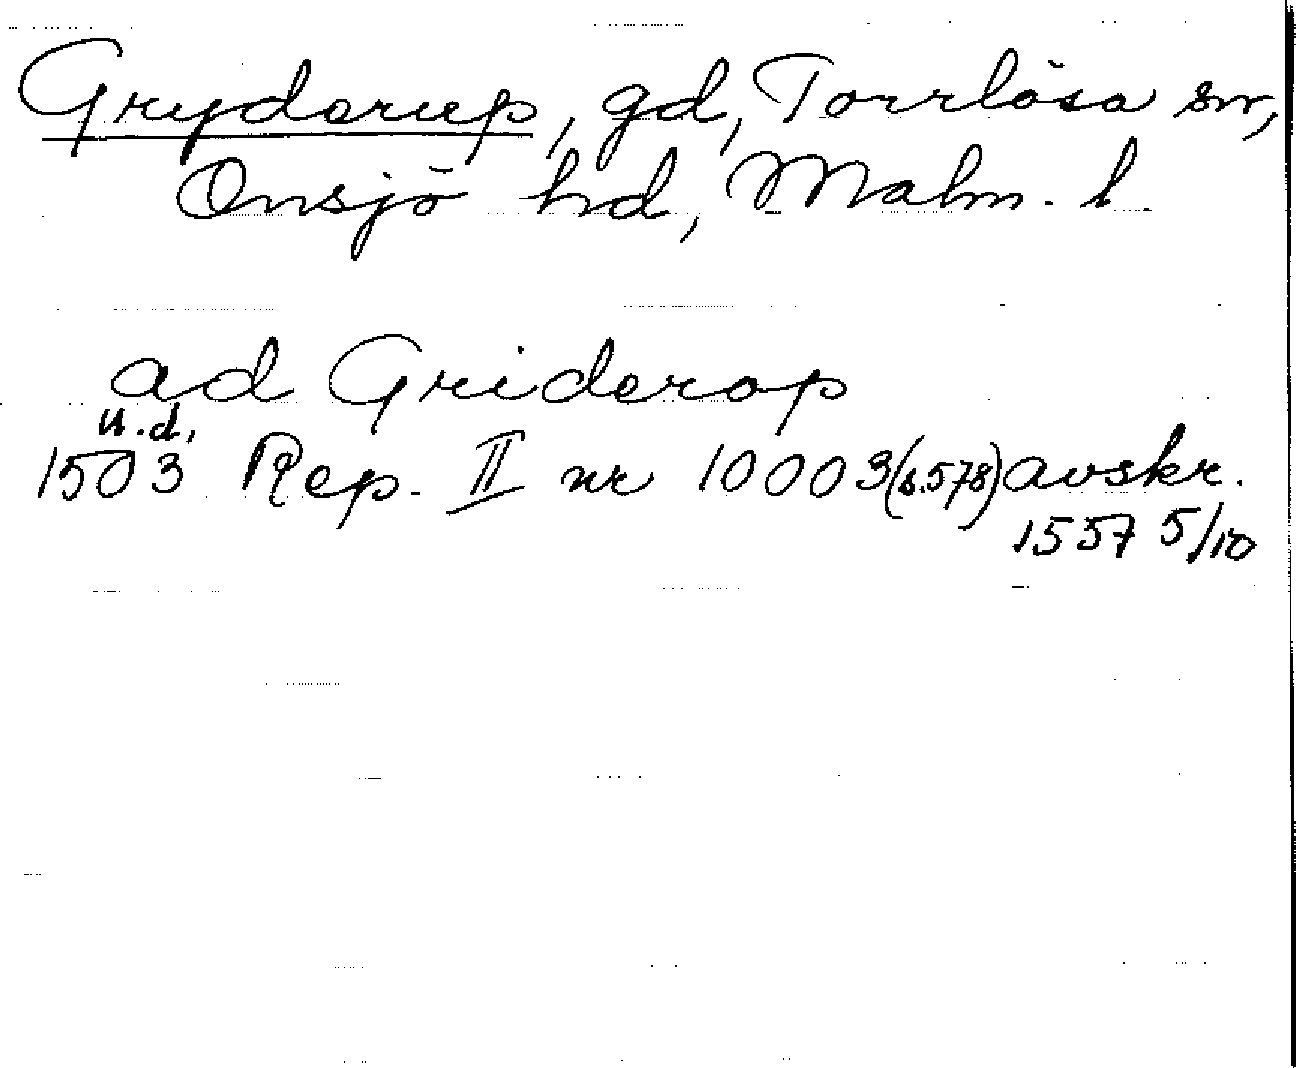 Gryderup, gd, Torrlösa sn,
Onsjö hd, Malm. l
ad Griderop
u.d.
1503 Rep. II nr 10003 (s.578) avskr.
1557 5/10